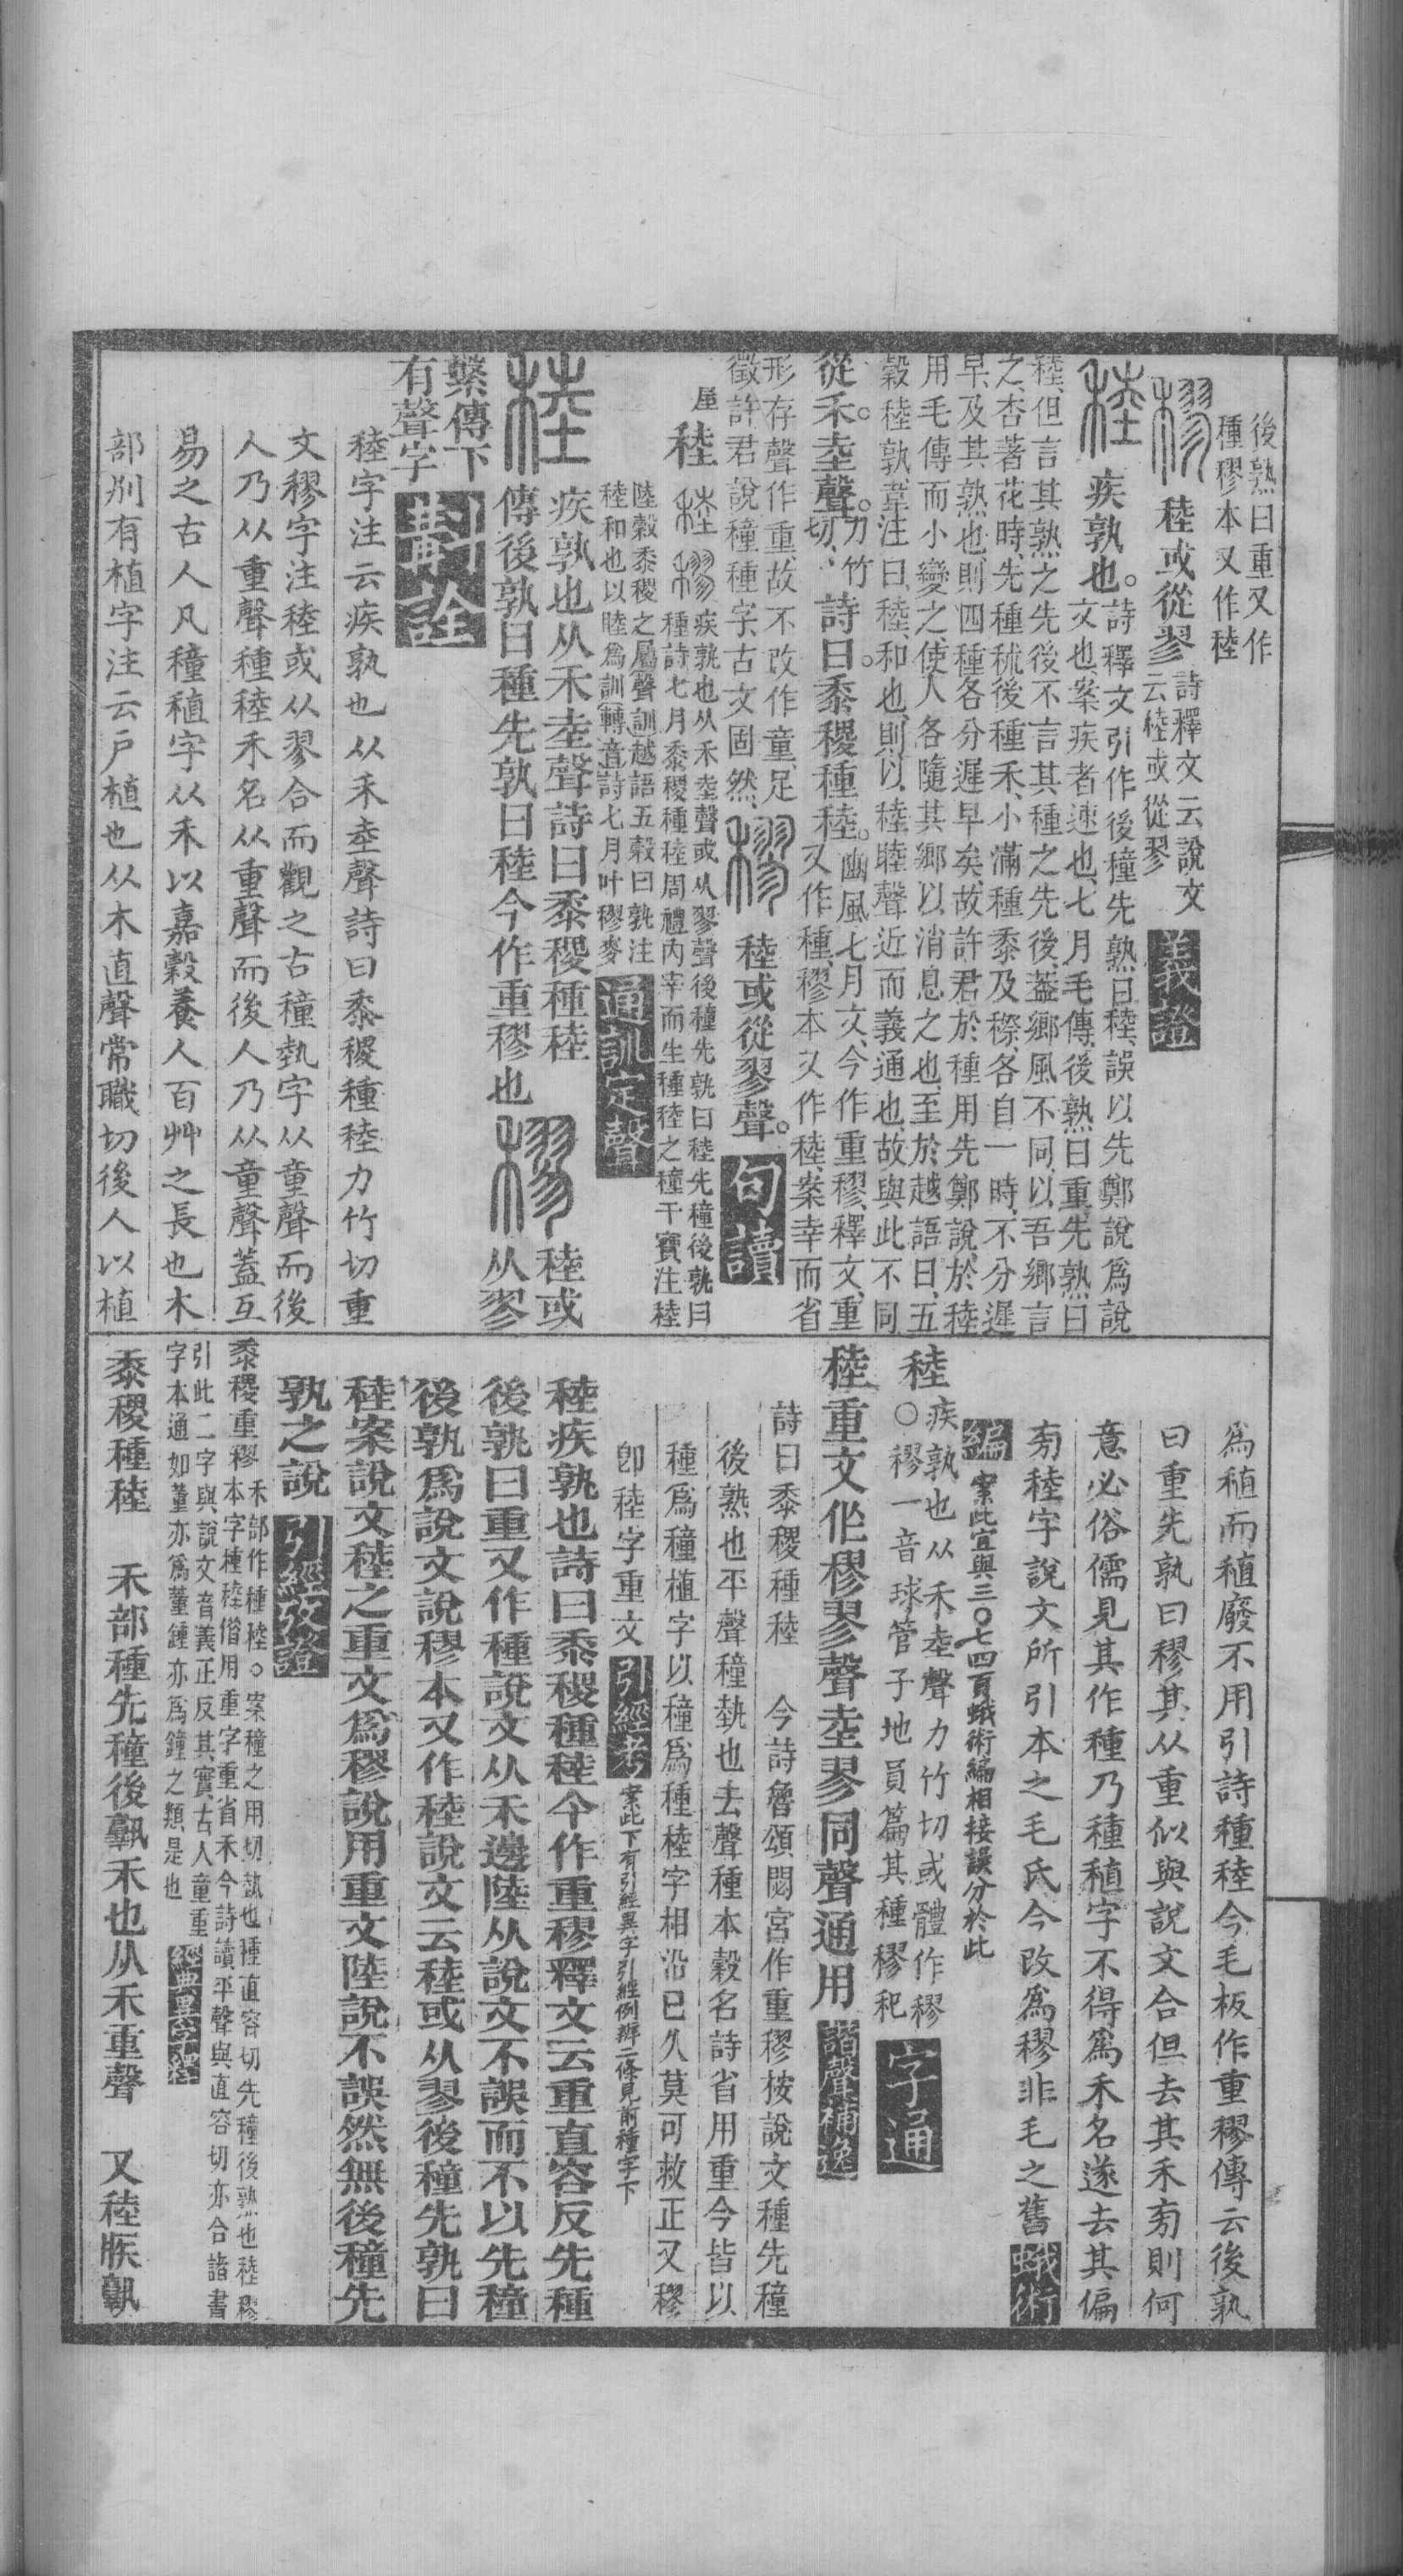 後熟曰重又作
種穋本又作稑
稑或從翏
詩釋文云說文
云稑或從翏
義證
疾孰也。
詩釋文引作後穜先熟曰稑誤以先鄭說爲說
文也案疾者速也七月毛傳後熟曰重先熟曰
稑但言其熟之先後不言其種之先後葢鄉風不同以吾鄉言
之杏著花時先種秫後種禾小滿種黍及穄各自一時不分遲
早及其熟也則四種各分遲早矣故許君於種用先鄭說於稑
用毛傳而小變之使人各隨其鄉以消息之也至於越語曰五
穀稑孰韋注曰稑和也則以稑睦聲近而義通也故與此不同
從禾坴聲。
力竹
切
詩曰黍稷種稑。
豳風七月文今作重穋釋文重
又作種穋本又作稑案幸而省
形存聲作重故不改作童足
徵許君說穜種字古文固然
稑或從翏聲。
句讀
稑
疾孰也从禾坴聲或从翏聲後種先孰曰稑先穜後孰曰
種詩七月黍稷種稑周禮內宰而生種稑之穜干寶注稑
陸穀黍稷之屬聲訓越語五穀曰孰注
稑和也以睦爲訓轉音詩七月叶穋麥
通訓定聲
疾孰也从禾坴聲詩曰黍稷種稑
傳後孰曰種先孰曰稑今作重穋也
稑或
从翏
繫傳下
有聲字
稑字注云疾孰也从禾坴聲詩曰黍稷種稑力竹切重
文穋字注稑或从翏合而觀之古穜埶字从童聲而後
人乃从重聲種稑禾名从重聲而後人乃从童聲蓋互
易之古人凡穜稙字从禾以嘉穀養人百艸之長也木
部別有植字注云戶植也从木直聲常職切後人以植
爲稙而稙廢不用引詩種稑今毛板作重穋傳云後孰
曰重先孰曰穋其从重似與說文合但去其禾㫄則何
意必俗儒見其作種乃種稙字不得爲禾名遂去其偏
㫄稑字說文所引本之毛氏今改爲穋非毛之舊
蛾術
編
案此宜與三〇七四頁蛾術編相接誤分於此
稑
疾孰也从禾坴聲力竹切或體作穋
〇穋一音球管子地員篇其種穋秬
字通
稑重文作穋翏聲坴翏同聲通用
諧聲補逸
詩曰黍稷種稑　今詩魯頌閟宮作重穋按說文種先穜
後熟也平聲穜埶也去聲種本穀名詩省用重今皆以
種爲穜植字以穜爲種稑字相沿已久莫可救正又穋
卽稑字重文
引經考
案此下有引經異字引經例辨二條見前種字下
稑疾孰也詩曰黍稷種稑今作重穋釋文云重直容反先種
後孰曰重又作種說文从禾邊陸从說文不誤而不以先穜
後孰爲說文說穋本又作稑說文云稑或从翏後穜先孰曰
稑案說文稑之重文爲穋說用重文陸說不誤然無後穜先
孰之說
引經攷證
黍稷重穋
禾部作種稑。案穜之用切埶也種直容切先穜後熟也稑穋
本字種稑俗用重字重省禾今詩讀平聲與直容切亦合諸書
引此二字與說文音義正反其實古人童重
字本通如董亦爲蕫鍾亦爲鐘之類是也
黍稷種稑　禾部種先穜後孰禾也从禾重聲　又稑疾孰